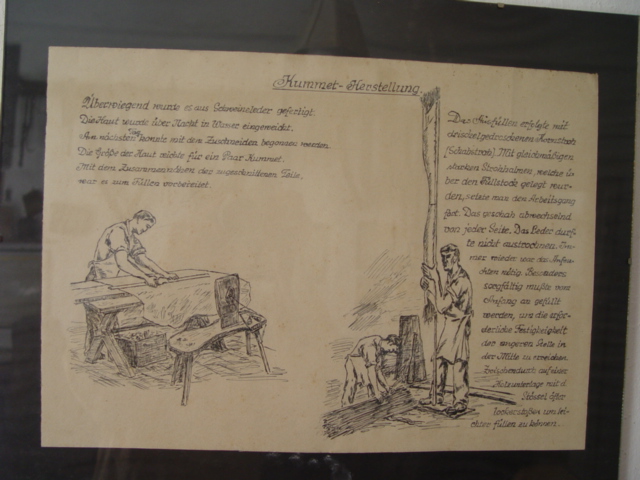 Kummet-Herstellung.
Überwiegend wurde es aus Schweineleder gefertigt.
Die Haut wurde über Nacht in Wasser eingeweicht.
Am nächsten Tag konnte mit dem Zuschneiden begonnen werden.
Die Größe der Haut reichte für ein Paar Kummet.
Mit dem Zusammennähen der zugeschnittenen Teile,
war es zum Füllen vorbereitet.
Das Ausfüllen erfolgte mit
gedroschenem Kornstroh
(Schabstroh). Mit gleichmäßigen
starken Strohhalmen, welche ü-
ber den Füllstock gelegt wur-
den, setzte man den Arbeitsgang
fort. Das geschah abwechselnd
von jeder Seite. Das Leder durf-
te nicht austrocknen. Im-
mer wieder war das Anfeu-
chten nötig. Besonders
sorgfältig mußte von
Anfang an gefüllt
werden, um die erfor-
derliche Festigkeit
der engeren Stelle in
der Mitte zu erreichen.
auf einer
mit d.
Stössel öfter
um lei-
chter füllen zu können.